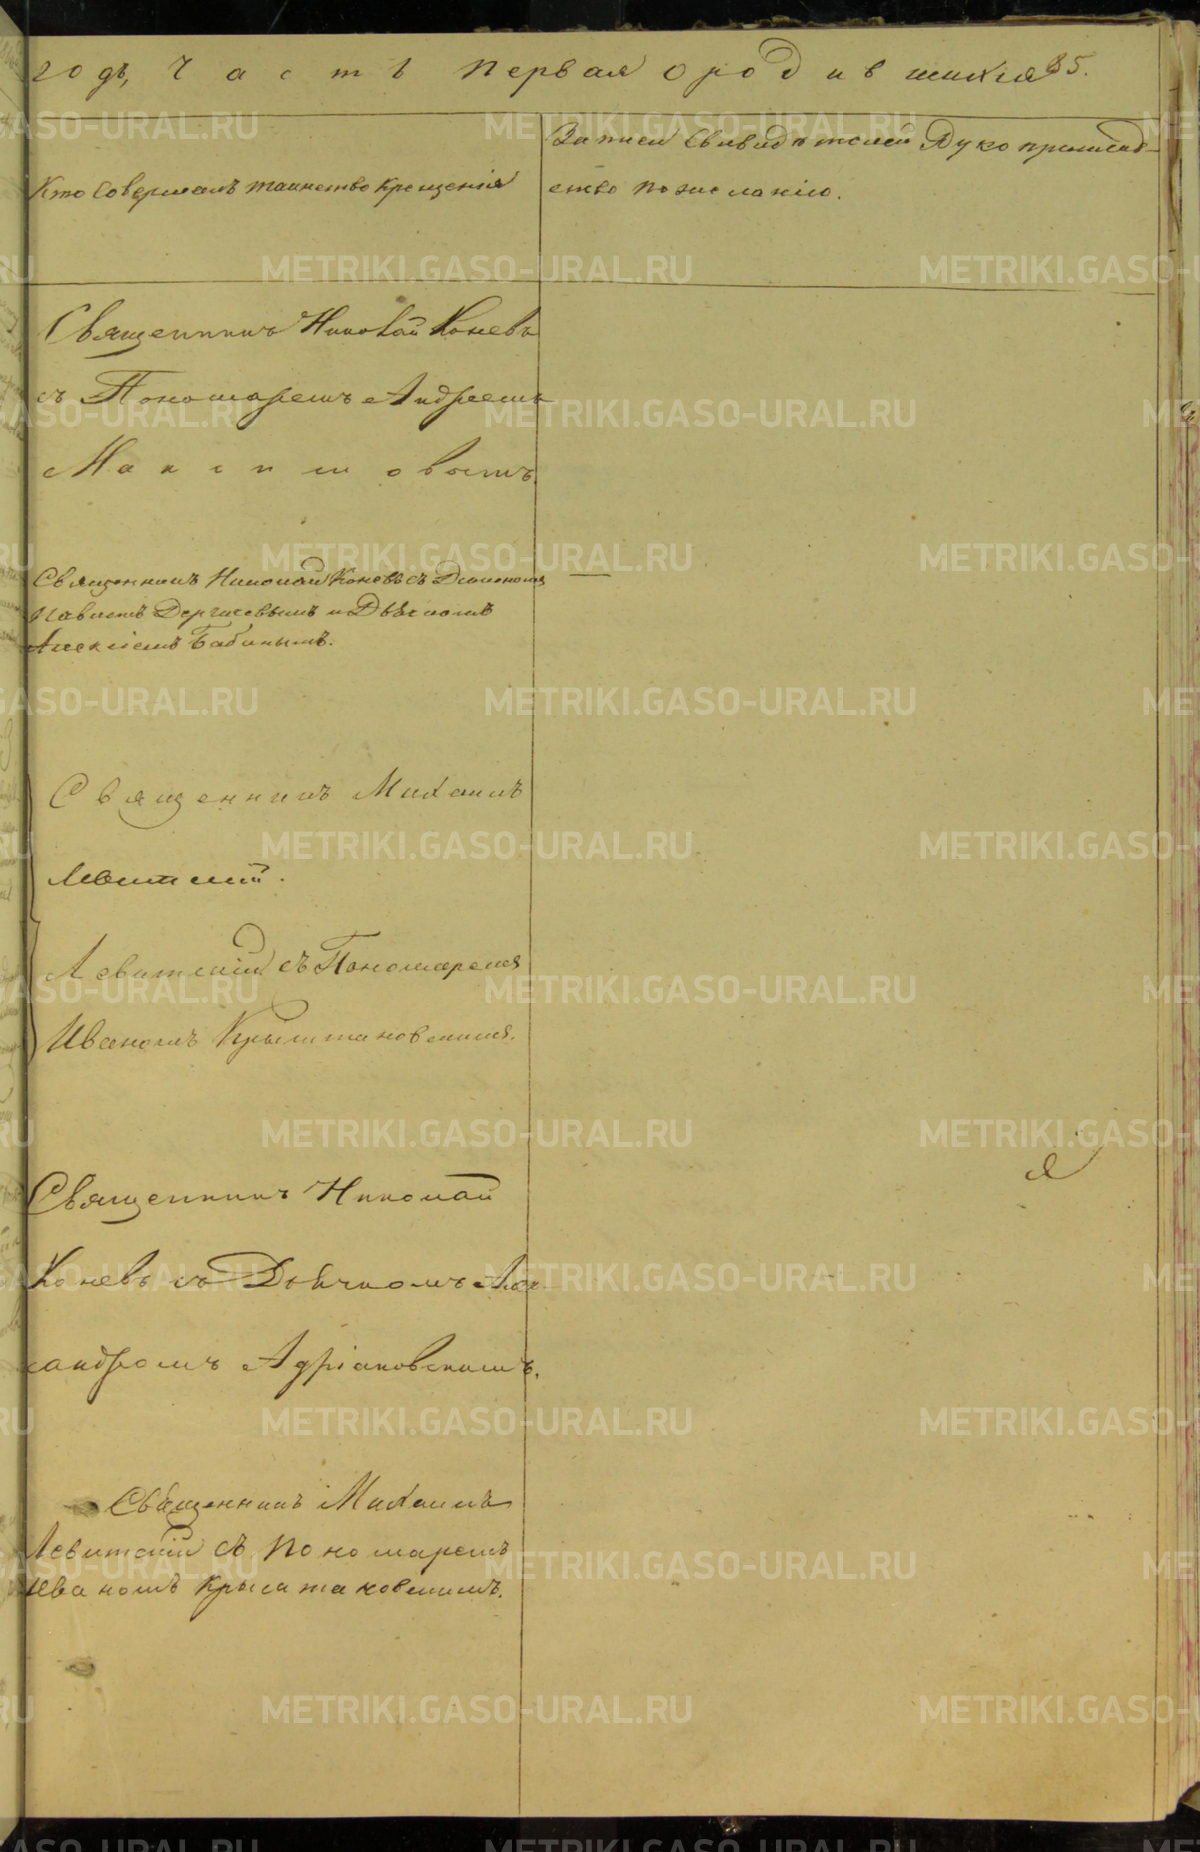 годъ, Часть первая о родившихся 85.
Кто совершалъ таинство крещенія
Записи свидѣтелей Рукоприклад-
ство по желанію.
Священникъ Николай Коневъ
съ Пономаремъ Андреемъ
Максимовымъ.
Священникъ Николай Коневъ съ Діакономъ
Павломъ Дергачевымъ и Дьячкомъ
Алексіемъ Бабинымъ.
Священникъ Михаилъ
Левитскій.
Левитскій съ Пономаремъ
Иваномъ Крыштановскимъ.
Священникъ Николай
Коневъ съ Дьячкомъ Алек-
сандромъ Адріановскимъ.
Священникъ Михаилъ
Левитскій съ Пономаремъ
Иваномъ Крыштановскимъ.
METRIKI.GASO-URAL.RU